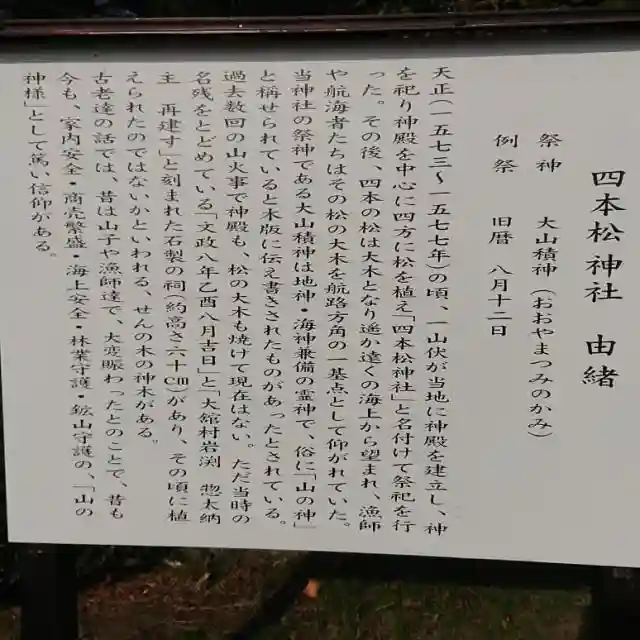 四本松神社 由緒
祭神 大山積神(おおやまつみのかみ)
例祭 旧暦 八月十二日
天正(一五七三〜一五七七年)の頃、一山伏が当地に神殿を建立し、神
を祀り神殿を中心に四方に松を植え「四本松神社」と名付けて祭祀を行
った。その後、四本の松は大木となり遥か遠くの海上から望まれ、漁師
や航海者たちはその松の大木を航路方角の一基点として仰がれていた。
当神社の祭神である大山積神は地神・海神兼備の霊神で、俗に「山の神」
と称せられていると木版に伝え書きされたものがあったとされている。
過去数回の山火事で神殿も、松の大木も焼けて現在はない。ただ当時の
名残をとどめている「文政八年乙酉八月吉日」と「大舘村岩渕 惣太納
主 再建す」と刻まれた石製の祠(約高さ六十㎝)があり、その頃に植
えられたのではないかといわれる、せんの木の神木がある。
古老達の話では、昔は山子や漁師達で、大変賑わったとのことで、昔も
今も、家内安全・商売繁盛・海上安全・林業守護・鉱山守護の、「山の
神様」として篤い信仰がある。